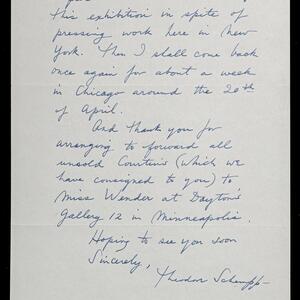 this exhibition in spite of
pressing work here in New
York. Then I shall come back
once again for about a week
in Chicago around the 20th
of April.
And thank you for
arranging to forward all
unsold Courtens (which we
have consigned to you) to
Miss Wender at Dayton's
Gallery 12 in Minneapolis.
Hoping to see you soon
Sincerely,
Theodor Schempp